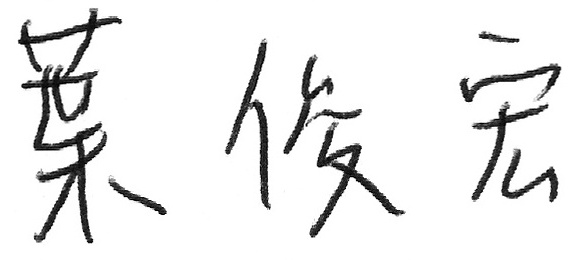 葉俊宏